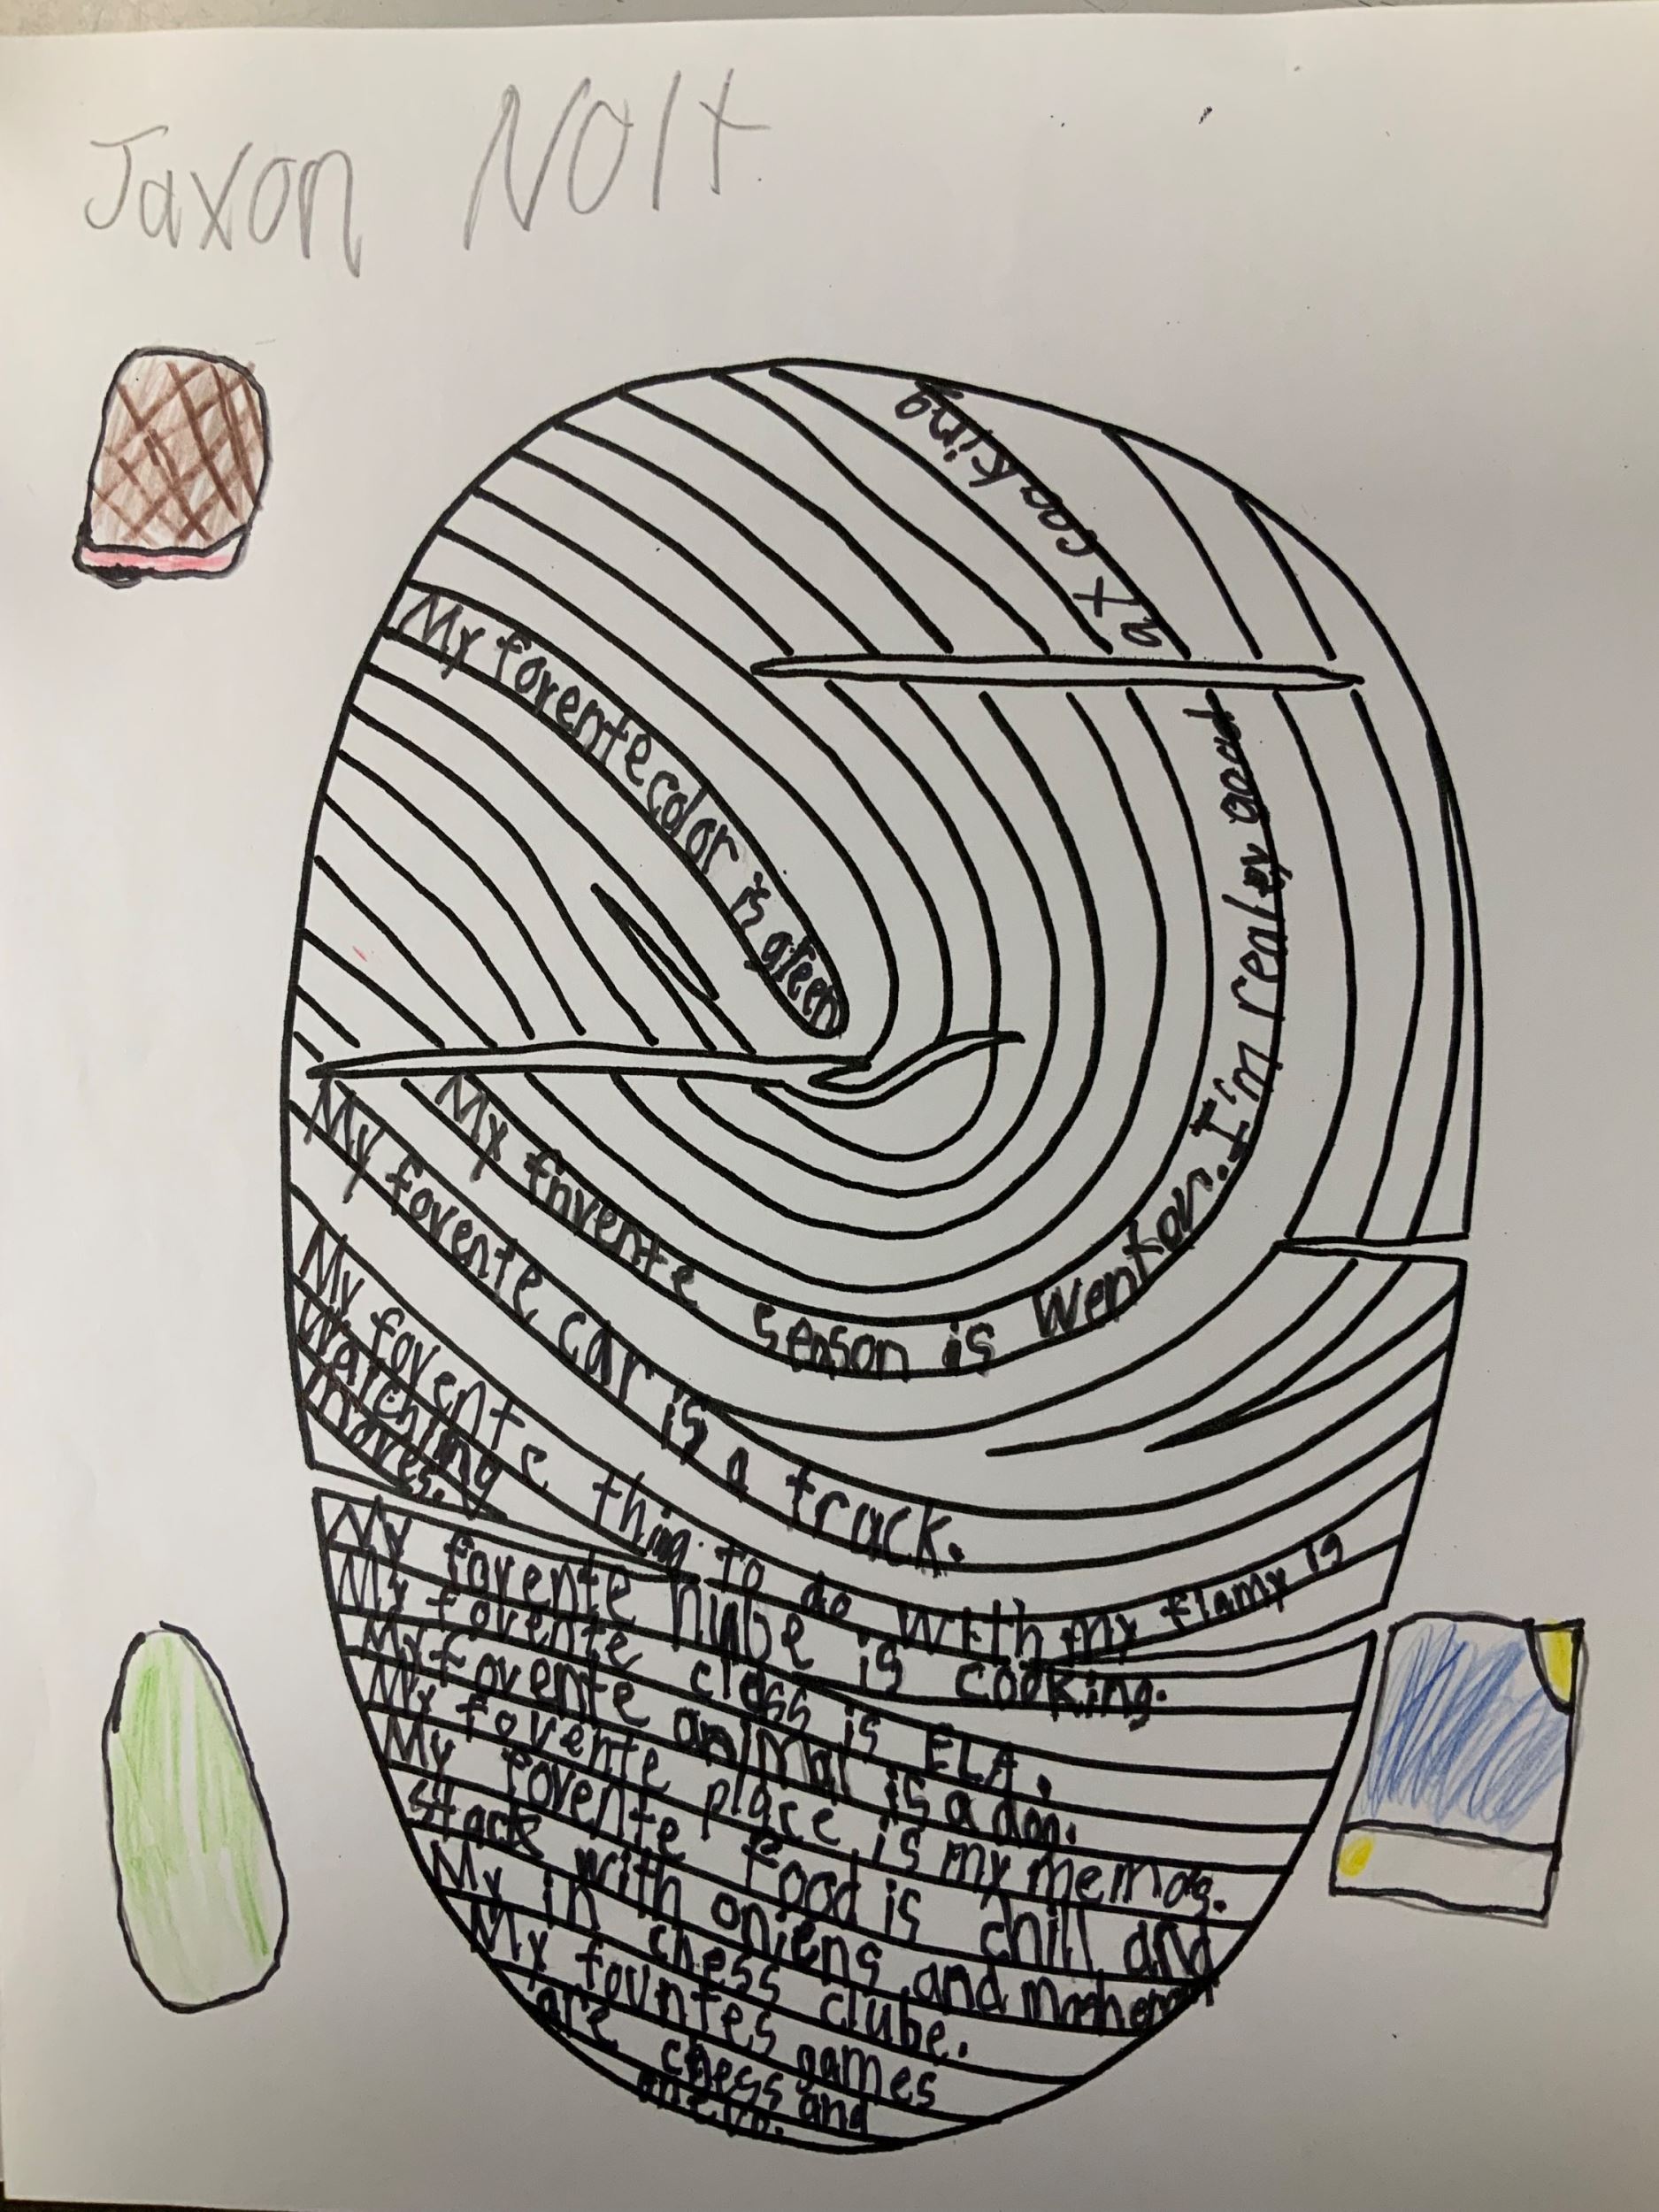 Jaxon Nolt
My forente color is green
My fnvente season is Wentor. I'm realey good
at cooking
My fovente car is a track.
My fovente thing to do with my flamy is
Watching
moves.
My forente hube is cooking.
My fovente class is ELA.
My fovente animal is a dog.
My fovente place is my memas.
My fovente food is chill and
stack with oniens and
My in chess clube.
My fovntes games
are chess and